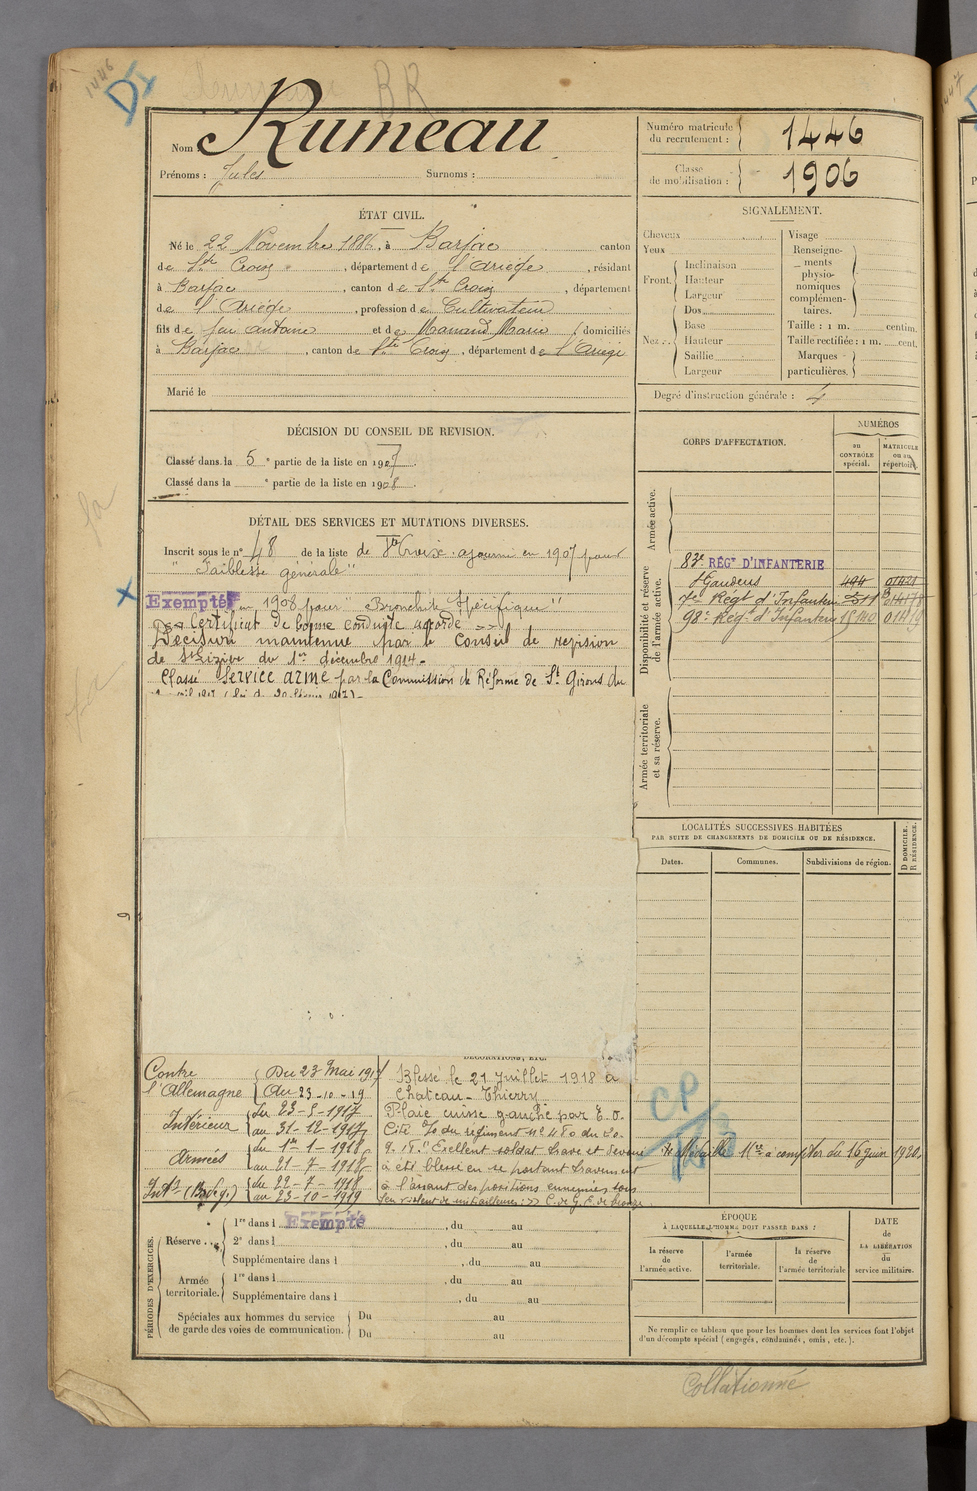 1446
D1
BR
Nom Rumeau
Prénoms : Jules Surnoms :
Numéro matricule du recrutement : 1446
Classe de mobilisation : 1906
ÉTAT CIVIL.
Né le 22 Novembre 1886, à Barjac canton
de Ste Croix, département de l'Ariège, résidant
à Barjac, canton de Ste Croix, département
de l'Ariège, profession de Cultivateur
fils de feu Antoine et de Marrand Marie domiciliés
à Barjac, canton de Ste Croix, département de l'Ariège
Marié le
SIGNALEMENT.
Cheveux
Yeux
Front.
Inclinaison
Hauteur
Largeur
Nez.
Dos
Base
Hauteur
Saillie
Largeur
Visage
Renseigne-
ments
physio-
nomiques
complémen-
taires.
Taille : 1 m. centim.
Taille rectifiée : 1 m. cent.
Marques
particulières.
Degré d'instruction générale : 4
DÉCISION DU CONSEIL DE REVISION.
Classé dans la 5e partie de la liste en 1907.
Classé dans la e partie de la liste en 1908.
DÉTAIL DES SERVICES ET MUTATIONS DIVERSES.
Inscrit sous le n° 48 de la liste de Ste Croix. ajourné en 1907 pour
"Faiblesse générale"
Exempté en 1908 pour "Bronchite spécifique"
Certificat de bonne conduite accordé
Décision maintenue par le Conseil de revision
de St Lizier du 1er décembre 1914.
Classé Service armé par la Commission de Réforme de St Girons du
CORPS D'AFFECTATION.
NUMÉROS
au CONTRÔLE spécial.
MATRICULE ou au répertoire.
Armée active.
Disponibilité et réserve de l'armée active.
83e RÉGt D'INFANTERIE
St Gaudens 494 01421
7e Régt d'Infanterie
98e Régt d'Infanterie
Armée territoriale et sa réserve.
LOCALITÉS SUCCESSIVES HABITÉES
PAR SUITE DE CHANGEMENTS DE DOMICILE OU DE RÉSIDENCE.
Dates.
Communes.
Subdivisions de région.
D DOMICILE.
R RÉSIDENCE.
DÉCORATIONS, ETC.
Contre l'Allemagne Du 23 Mai 1917
Au 23-10-19
Intérieur du 23-5-1917
au 31-12-1917
Armées du 1er-1-1918
au 21-7-1918
Intr (Bles.) du 22-7-1918
au 23-10-1919
Blessé le 21 Juillet 1918 à
Chateau-Thierry.
Plaie cuisse gauche par E.O.
Cité à l'o du régiment n° 480 du 20.
9.18. "Exellent soldat brave et dévoué
a été blessé en se portant bravement
à l'assaut des positions ennemies sous
feu violent de mitrailleuses" C. de G. E. de bronze.
CP
Médaille Mre à compter du 16 juin 1920.
PÉRIODES D'EXERCICES.
Réserve
1re dans l Exempté, du au
2e dans l, du au
Supplémentaire dans l, du au
Armée territoriale.
1re dans l, du au
Supplémentaire dans l, du au
Spéciales aux hommes du service
de garde des voies de communication.
Du au
Du au
ÉPOQUE
À LAQUELLE L'HOMME DOIT PASSER DANS :
la réserve de l'armée active.
l'armée territoriale.
la réserve de l'armée territoriale
DATE de LA LIBÉRATION du service militaire.
Ne remplir ce tableau que pour les hommes dont les services font l'objet
d'un décompte spécial (engagés, condamnés, omis, etc.).
Collationné